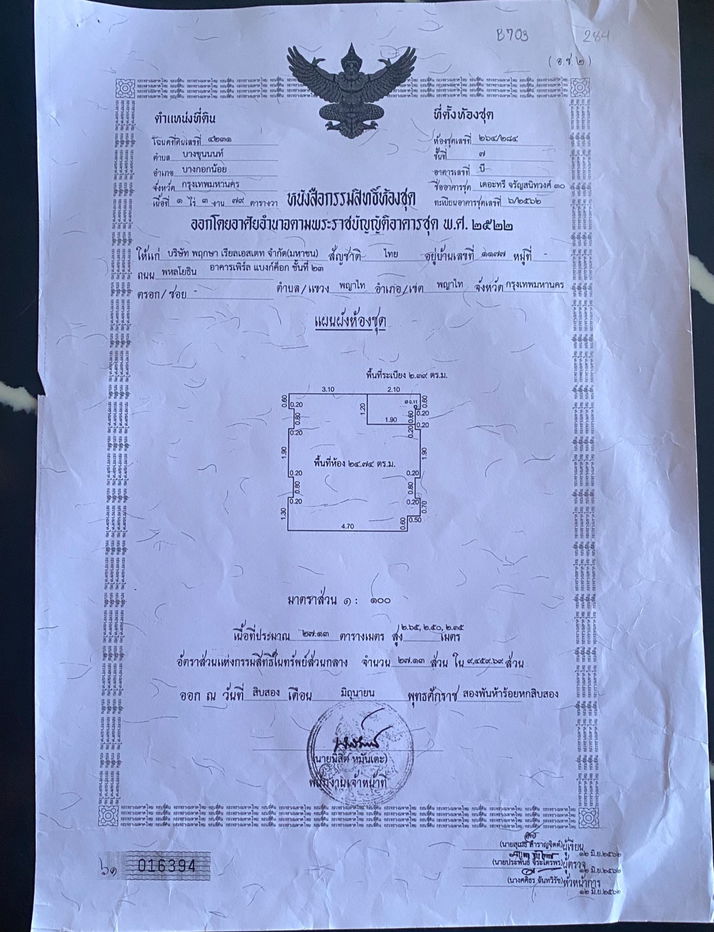 B703 284
(อ.ช.๒)
ตำแหน่งที่ดิน
โฉนดที่ดินเลขที่ ๔๒๓๑
ตำบล บางขุนนนท์
อำเภอ บางกอกน้อย
จังหวัด กรุงเทพมหานคร
เนื้อที่ ๑ ไร่ ๓ งาน ๗๙ ตารางวา
ที่ตั้งห้องชุด
ห้องชุดเลขที่ ๒๖๔/๒๘๔
ชั้นที่ ๗
อาคารเลขที่ บี
ชื่ออาคารชุด เดอะทรี จรัญสนิทวงศ์ ๓๐
ทะเบียนอาคารชุดเลขที่ ๖/๒๕๖๒
หนังสือกรรมสิทธิ์ห้องชุด
ออกโดยอาศัยอำนาจตามพระราชบัญญัติอาคารชุด พ.ศ. ๒๕๒๒
ให้แก่ บริษัท พฤกษา เรียลเอสเตท จำกัด(มหาชน) สัญชาติ ไทย อยู่บ้านเลขที่ ๑๑๗๗ หมู่ที่ -
ถนน พหลโยธิน อาคารเพิร์ล แบงก์ค็อก ชั้นที่ ๒๓
ตรอก/ซอย - ตำบล/แขวง พญาไท อำเภอ/เขต พญาไท จังหวัด กรุงเทพมหานคร
แผนผังห้องชุด
พื้นที่ระเบียง ๒.๓๙ ตร.ม.
3.10 2.10
0.60 0.20 0.80 0.20 1.20 1.90 0.60 0.20 0.60 0.20 0.20
1.90 1.90
พื้นที่ห้อง ๒๔.๗๔ ตร.ม.
0.20 0.80 0.20 0.20 0.80 0.20
1.30 4.70 0.60 0.50 0.70
มาตราส่วน ๑ : ๑๐๐
เนื้อที่ประมาณ ๒๗.๑๓ ตารางเมตร สูง ๒.๖๕, ๒.๕๐, ๒.๓๕ เมตร
อัตราส่วนแห่งกรรมสิทธิ์ในทรัพย์ส่วนกลาง จำนวน ๒๗.๑๓ ส่วน ใน ๙,๔๕๙.๖๙ ส่วน
ออก ณ วันที่ สิบสอง เดือน มิถุนายน พุทธศักราช สองพันห้าร้อยหกสิบสอง
(นายนิสิต หมันเตะ)
พนักงานเจ้าหน้าที่
๖๑ 016394
ผู้เขียน
๑๒ มิ.ย.๒๕๖๒
ผู้ตรวจ
๑๒ มิ.ย.๒๕๖๒
(นางศศิธร จันทวิรัช) หัวหน้าการ
๑๒ มิ.ย.๒๕๖๒